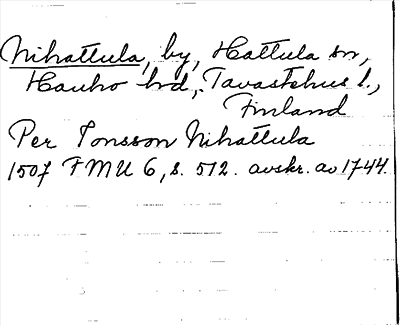 Nihattula, by, Hattula sn,
Hauho hd, Tavastehus l.,
Finland
Per Jonsson Nihattula
1507 FMU 6, s. 512. avskr. av 1744.